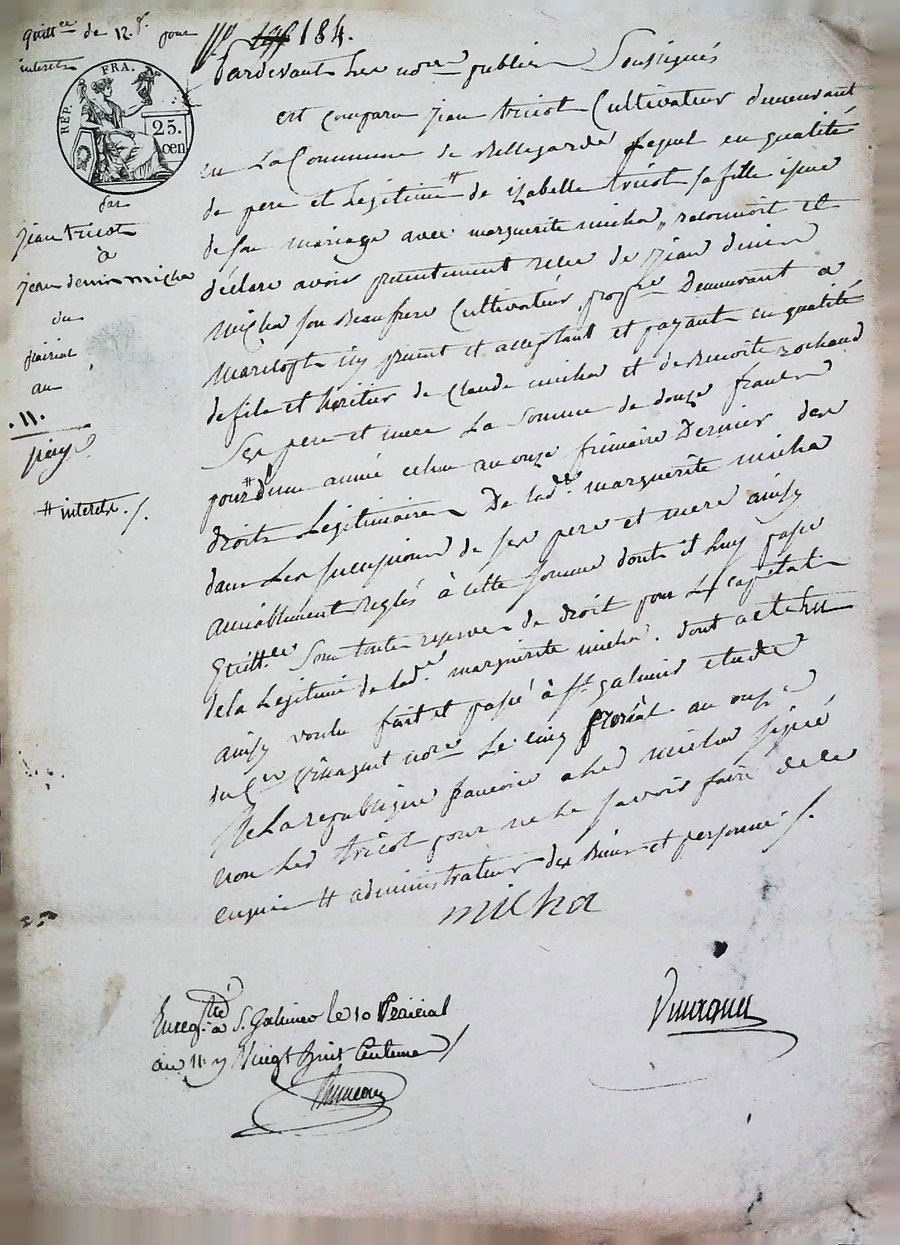 quitt.ce de 12 f. pour
interets
N° 184.
RÉP. FRA.
25.
cen
par
jean tricot
à
jean denis micha
du
prairial
an
.11.
# interets ./.
Pardevant Les no.res publics Soussignés
est comparu jean tricot Cultivateur demeurant
en La Commune de Bellegarde Lequel en qualité
de pere et Legitime # de izabelle tricot sa fille issue
de son mariage avec marguerite micha, reconnoit et
déclare avoir presentement recu de jean denis
micha son Beaufrere Cultivateur prop.re Demeurant a
icy present et acceptant et payant en qualité
de fils et heritier de Claude micha et de Benoite
Ses pere et mere La Somme de douze francs
pour # d'une année echue au onze frimaire Dernier des
droits Legitimaires De lad.te marguerite micha
dans Les successions de ses pere et mere ainsy
amiablement reglés à cette somme dont il Luy passe
quitt.ce Sous toute reserve de droit pour Le capital
de la Legitime de lad.e marguerite micha. dont acte Lu
ainsy voulu fait et passé à S.t galmier etude
du C.en no.re Le cinq floréal an onze
De La republique francoise a led micha signé
non Led tricot pour ne Le savoir faire de ce
enquis # administrateur des Biens et personne ./.
micha
Enreg.tré à S. Galmier le 10 Prairial
an 11 Vingt huit Centimes /